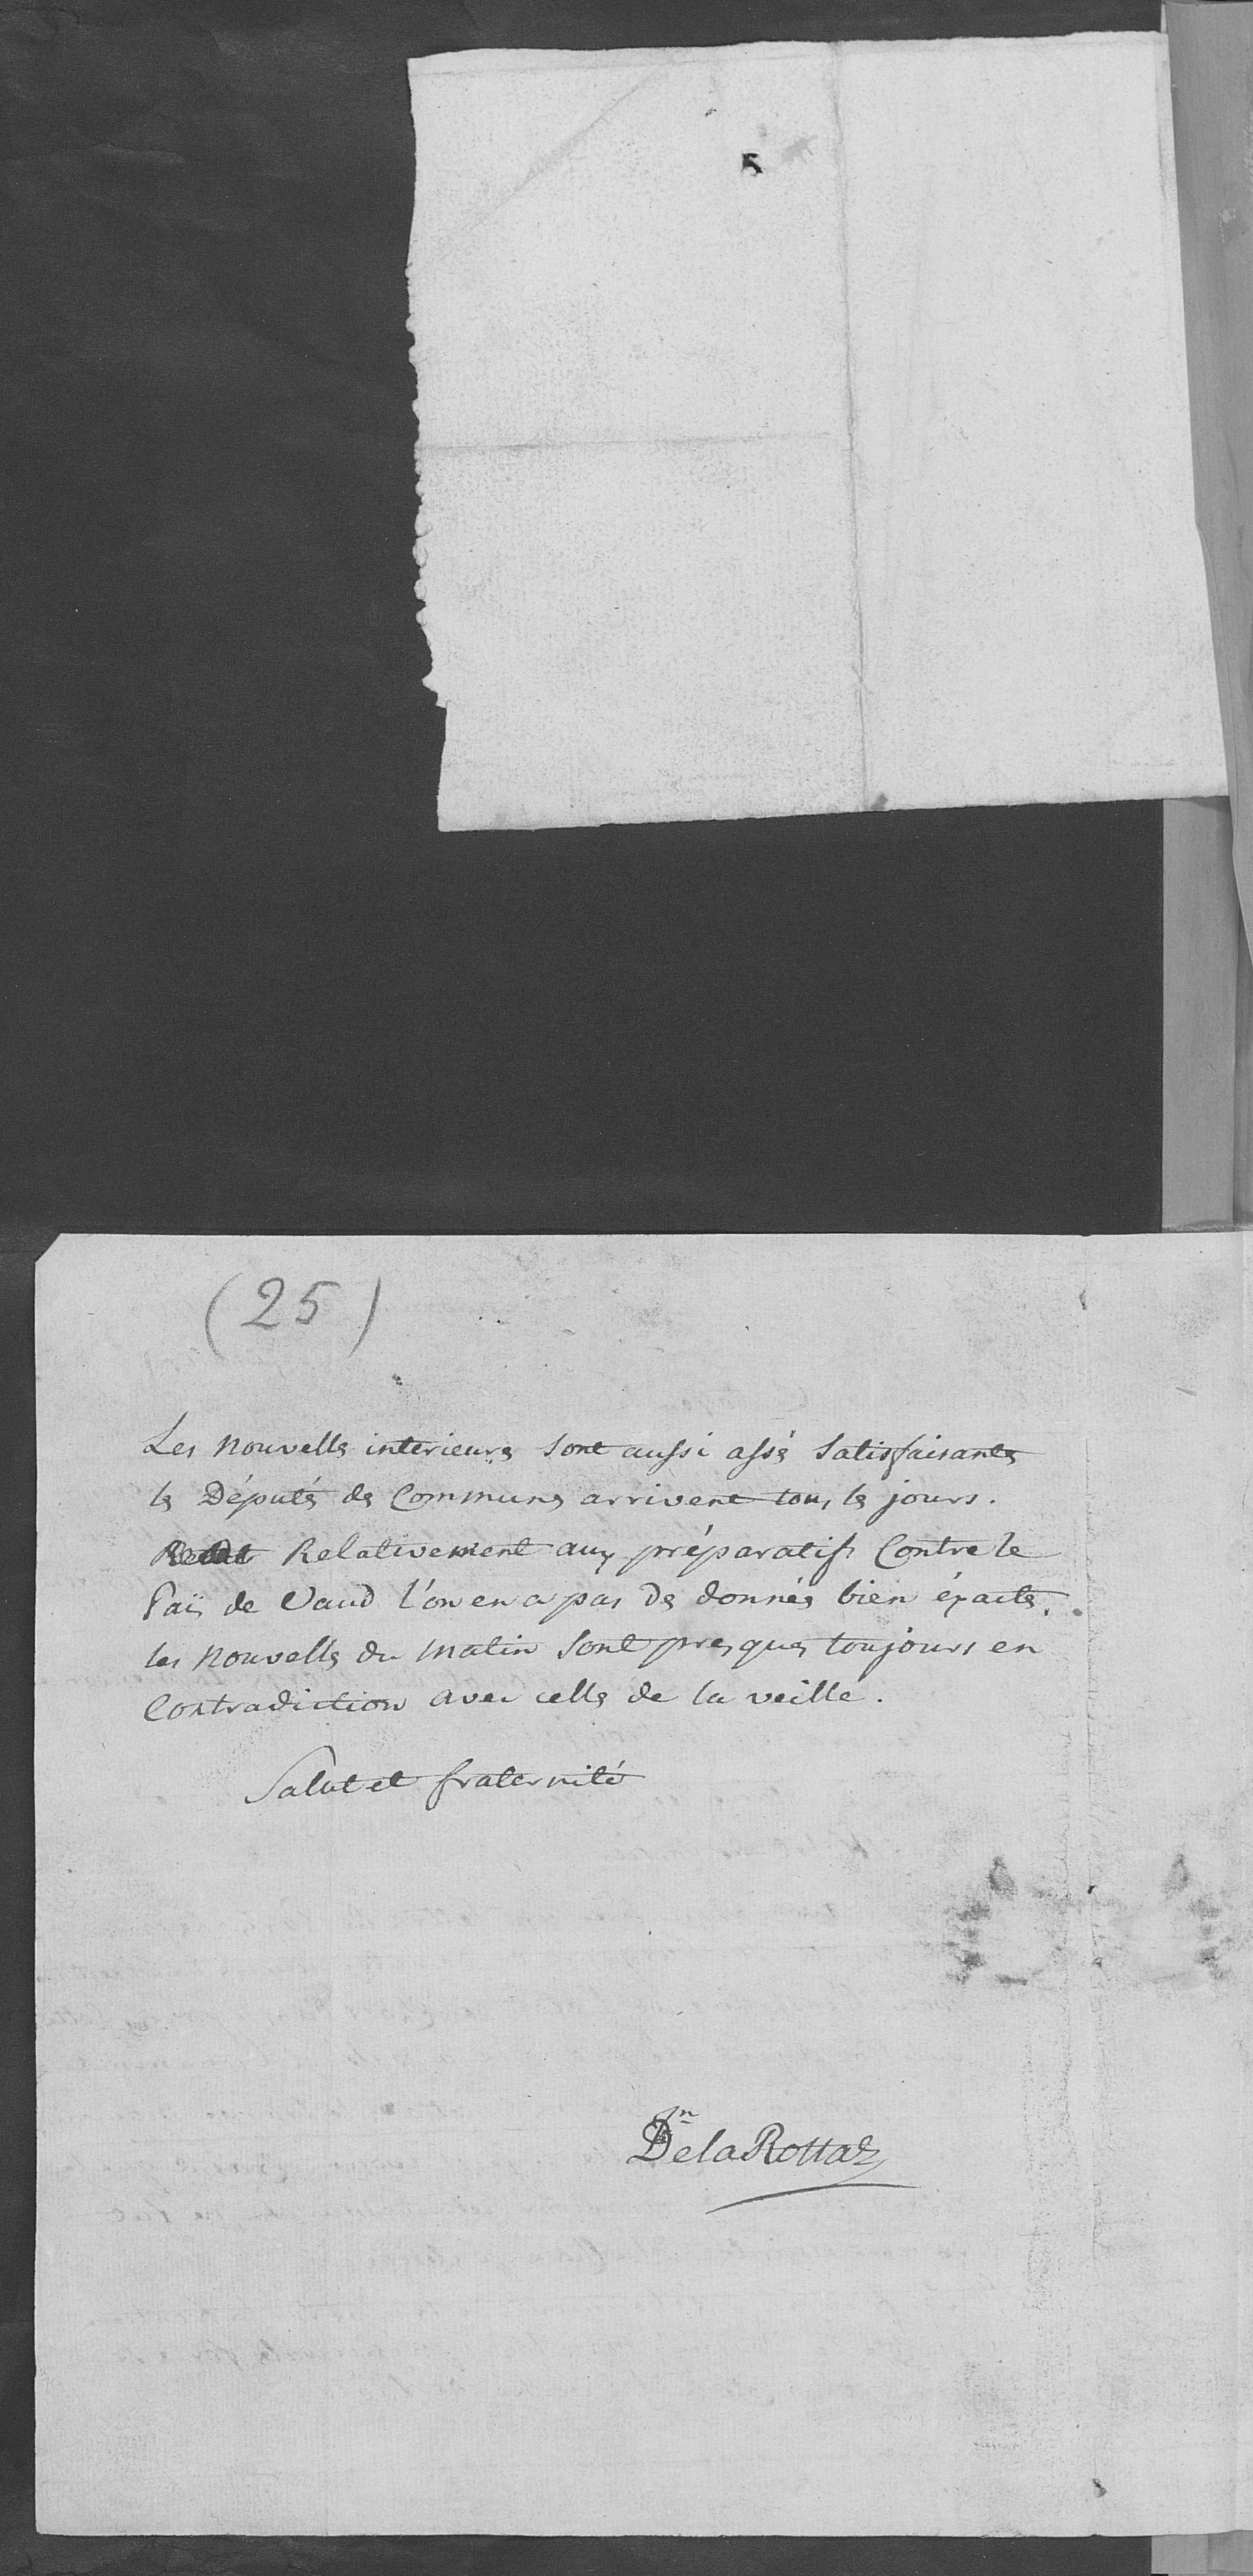 (25)
Les nouvelles interieures sont aussi assés satisfaisantes
les Députés des Communes arrivent tous les jours.
Relativement aux préparatifs Contre le
Païs de Vaud l'on en a pas des donnés bien éxactes.
les nouvelles du matin sont presques toujours en
Contradiction avec celles de la veille.
Salut et fraternité
Jn DelaRottaz